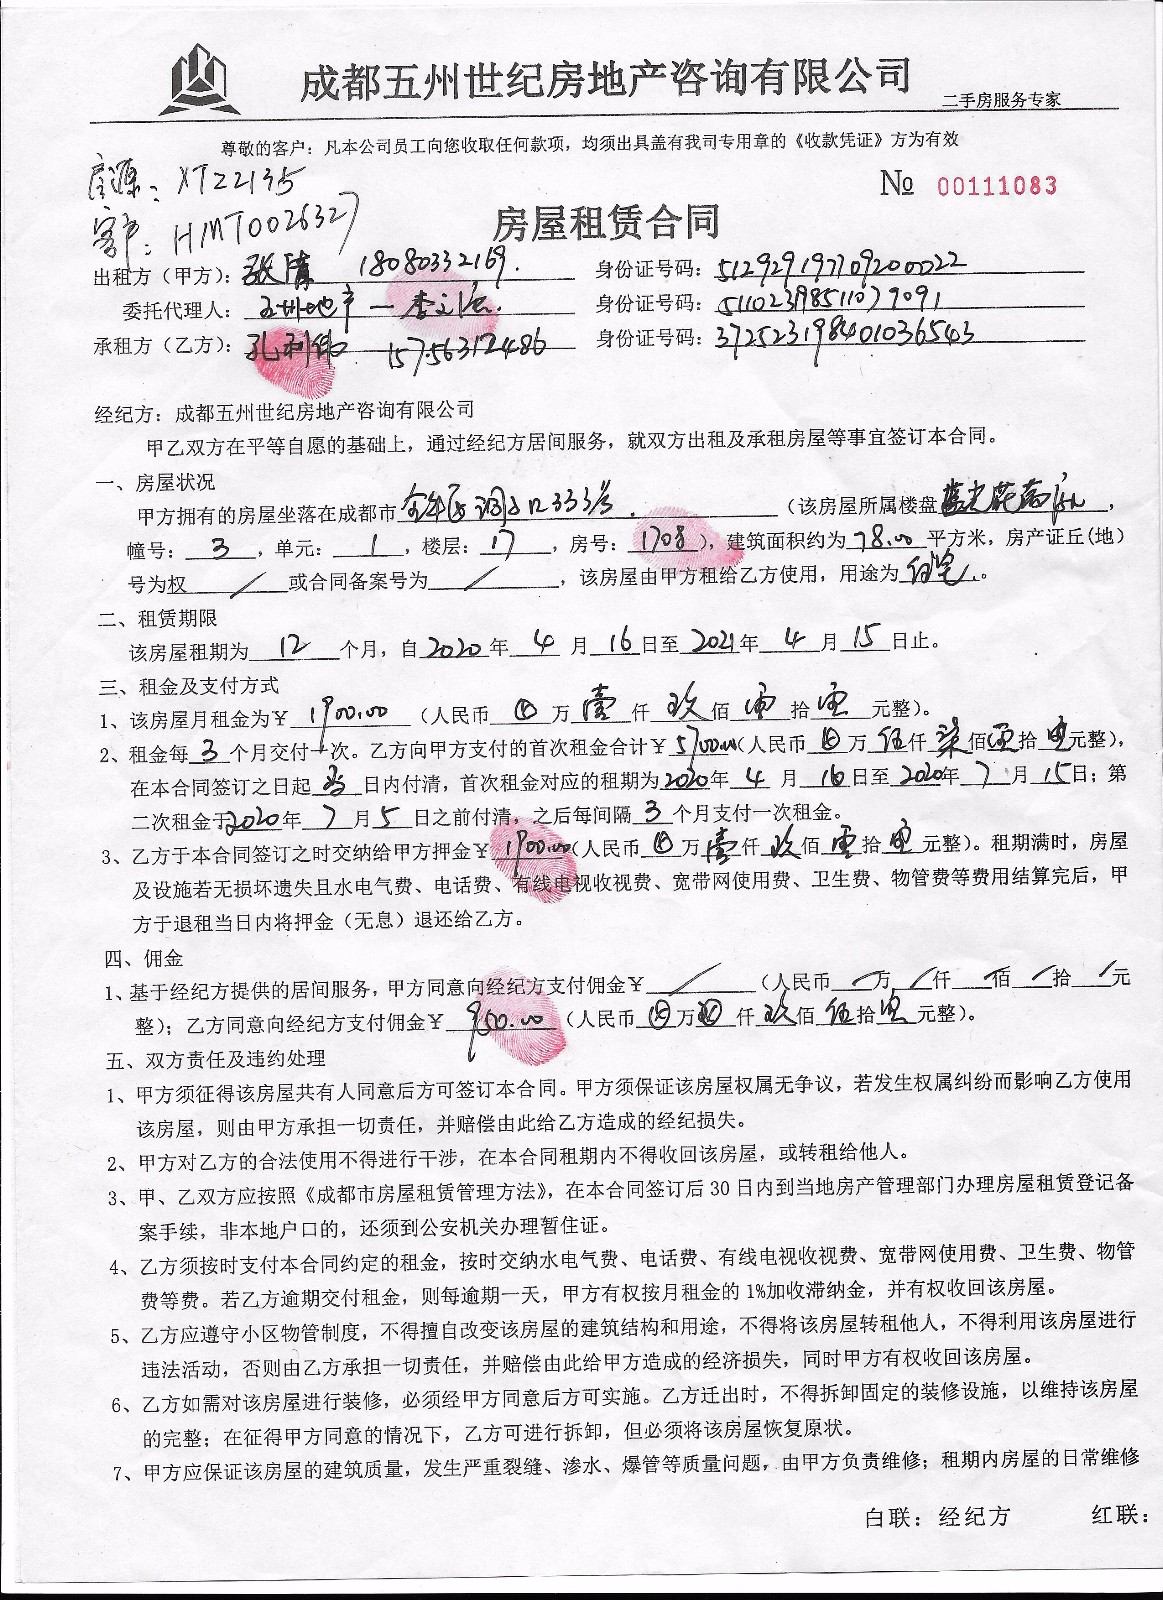 成都五州世纪房地产咨询有限公司
二手房服务专家
尊敬的客户：凡本公司员工向您收取任何款项，均须出具盖有我司专用章的《收款凭证》方为有效
房源：XTZ2135
№ 00111083
客户：HMT0026327
房屋租赁合同
出租方（甲方）：张清 18080332169. 身份证号码：512929197709200022
委托代理人：五州地产— 身份证号码：511023198511079091
承租方（乙方）：孔利伟 15756312486 身份证号码：372523198401036543
经纪方：成都五州世纪房地产咨询有限公司
甲乙双方在平等自愿的基础上，通过经纪方居间服务，就双方出租及承租房屋等事宜签订本合同。
一、房屋状况
甲方拥有的房屋坐落在成都市金牛区洞子口333号.（该房屋所属楼盘蓝光花满庭，
幢号：3，单元：1，楼层：17，房号：1708），建筑面积约为78.00平方米，房产证丘(地)
号为权／或合同备案号为／，该房屋由甲方租给乙方使用，用途为住宅。
二、租赁期限
该房屋租期为12个月，自2020年4月16日至2021年4月15日止。
三、租金及支付方式
1、该房屋月租金为￥1900.00（人民币⊕万壹仟玖佰零拾零元整）。
2、租金每3个月交付一次。乙方向甲方支付的首次租金合计￥5700.00（人民币⊕万伍仟柒佰零拾零元整），
在本合同签订之日起当日内付清，首次租金对应的租期为2020年4月16日至2020年7月15日；第
二次租金于2020年7月5日之前付清，之后每间隔3个月支付一次租金。
3、乙方于本合同签订之时交纳给甲方押金￥1900.00（人民币⊕万壹仟玖佰零拾零元整）。租期满时，房屋
及设施若无损坏遗失且水电气费、电话费、有线电视收视费、宽带网使用费、卫生费、物管费等费用结算完后，甲
方于退租当日内将押金（无息）退还给乙方。
四、佣金
1、基于经纪方提供的居间服务，甲方同意向经纪方支付佣金￥／（人民币／万／仟／佰／拾／元
整）；乙方同意向经纪方支付佣金￥950.00（人民币⊕万⊕仟玖佰伍拾零元整）。
五、双方责任及违约处理
1、甲方须征得该房屋共有人同意后方可签订本合同。甲方须保证该房屋权属无争议，若发生权属纠纷而影响乙方使用
该房屋，则由甲方承担一切责任，并赔偿由此给乙方造成的经纪损失。
2、甲方对乙方的合法使用不得进行干涉，在本合同租期内不得收回该房屋，或转租给他人。
3、甲、乙双方应按照《成都市房屋租赁管理方法》，在本合同签订后30日内到当地房产管理部门办理房屋租赁登记备
案手续，非本地户口的，还须到公安机关办理暂住证。
4、乙方须按时支付本合同约定的租金，按时交纳水电气费、电话费、有线电视收视费、宽带网使用费、卫生费、物管
费等费。若乙方逾期交付租金，则每逾期一天，甲方有权按月租金的1%加收滞纳金，并有权收回该房屋。
5、乙方应遵守小区物管制度，不得擅自改变该房屋的建筑结构和用途，不得将该房屋转租他人，不得利用该房屋进行
违法活动，否则由乙方承担一切责任，并赔偿由此给甲方造成的经济损失，同时甲方有权收回该房屋。
6、乙方如需对该房屋进行装修，必须经甲方同意后方可实施。乙方迁出时，不得拆卸固定的装修设施，以维持该房屋
的完整；在征得甲方同意的情况下，乙方可进行拆卸，但必须将该房屋恢复原状。
7、甲方应保证该房屋的建筑质量，发生严重裂缝、渗水、爆管等质量问题，由甲方负责维修；租期内房屋的日常维修
白联：经纪方 红联：